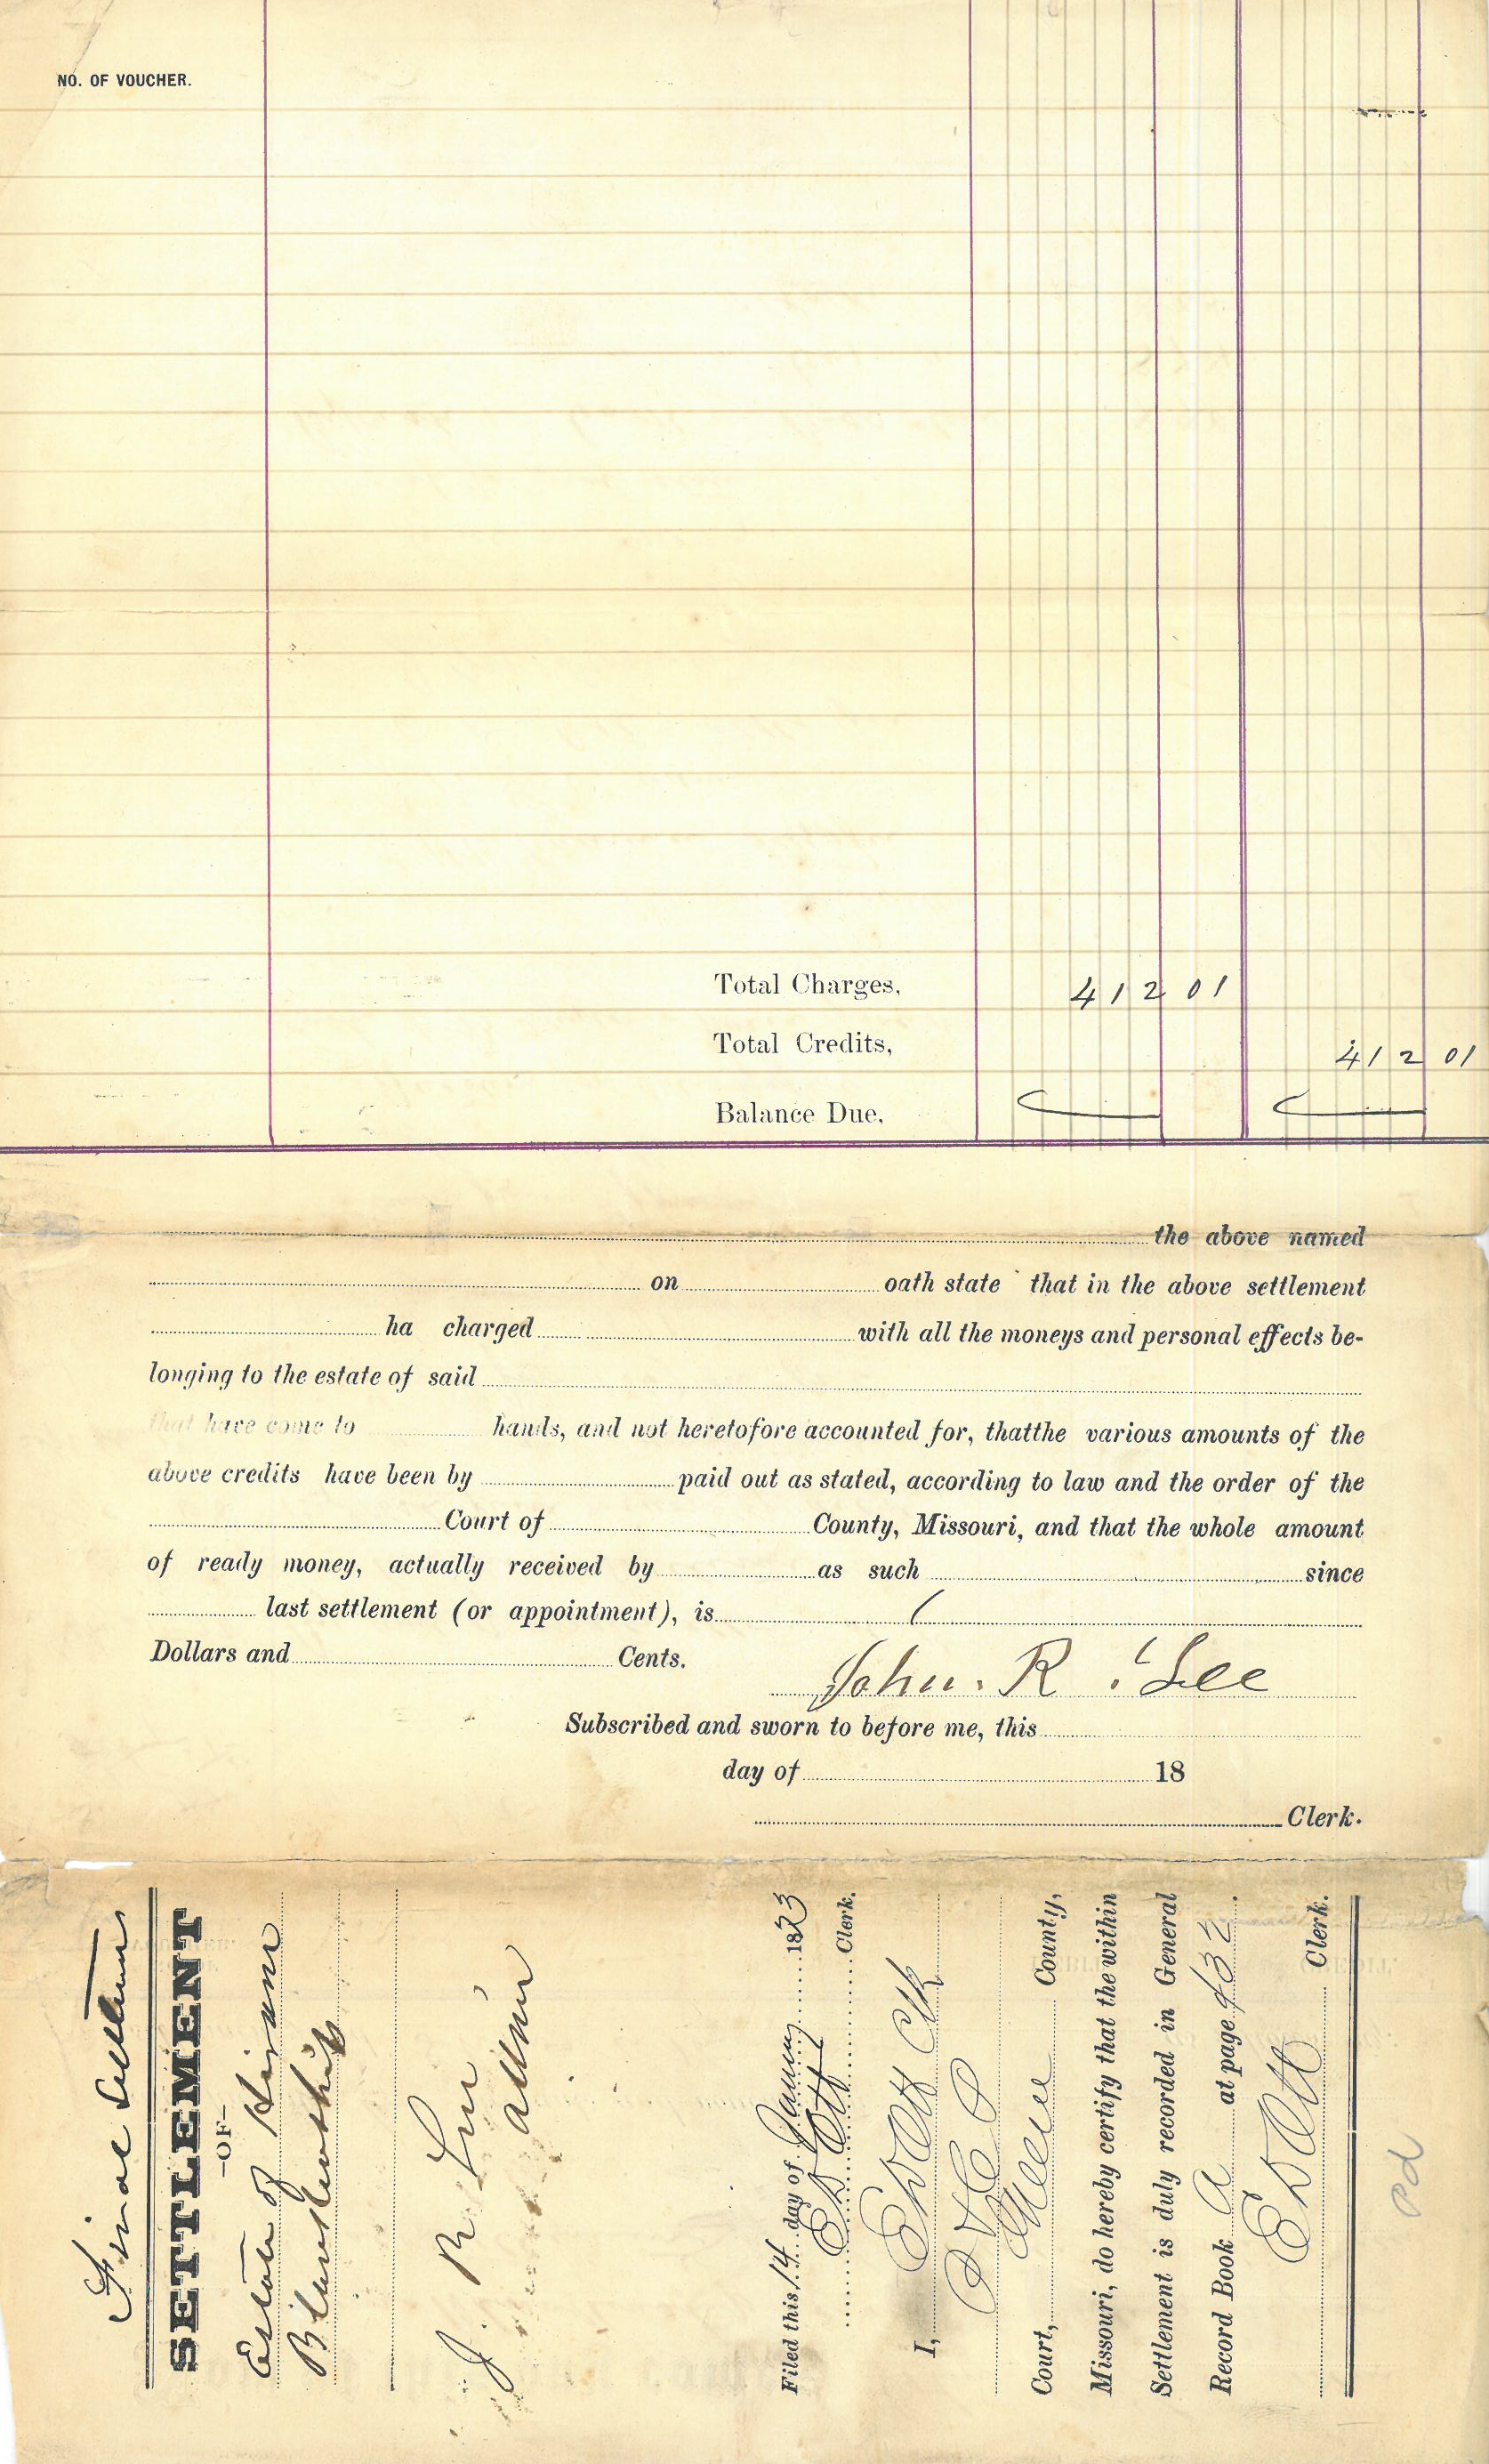 NO. OF VOUCHER.
Total Charges, 412 01
Total Credits, 412 01
Balance Due,
the above named
on oath state that in the above settlement
ha charged with all the moneys and personal effects be-
longing to the estate of said
that have come to hands, and not heretofore accounted for, thatthe various amounts of the
above credits have been by paid out as stated, according to law and the order of the
Court of County, Missouri, and that the whole amount
of ready money, actually received by as such since
last settlement (or appointment), is
Dollars and Cents.
John. R. Lee
Subscribed and sworn to before me, this
day of 18
Clerk.
Final Settlement
SETTLEMENT
-OF-
Estate of Hiram
Blankenship
J. R. Lee
Admin
Filed this 14 day of January 1893
E D Ott Clerk.
I, E D Ott Clk
Court, Greene County,
Missouri, do hereby certify that the within
Settlement is duly recorded in General
Record Book A at page 432.
E D Ott Clerk.
Pd